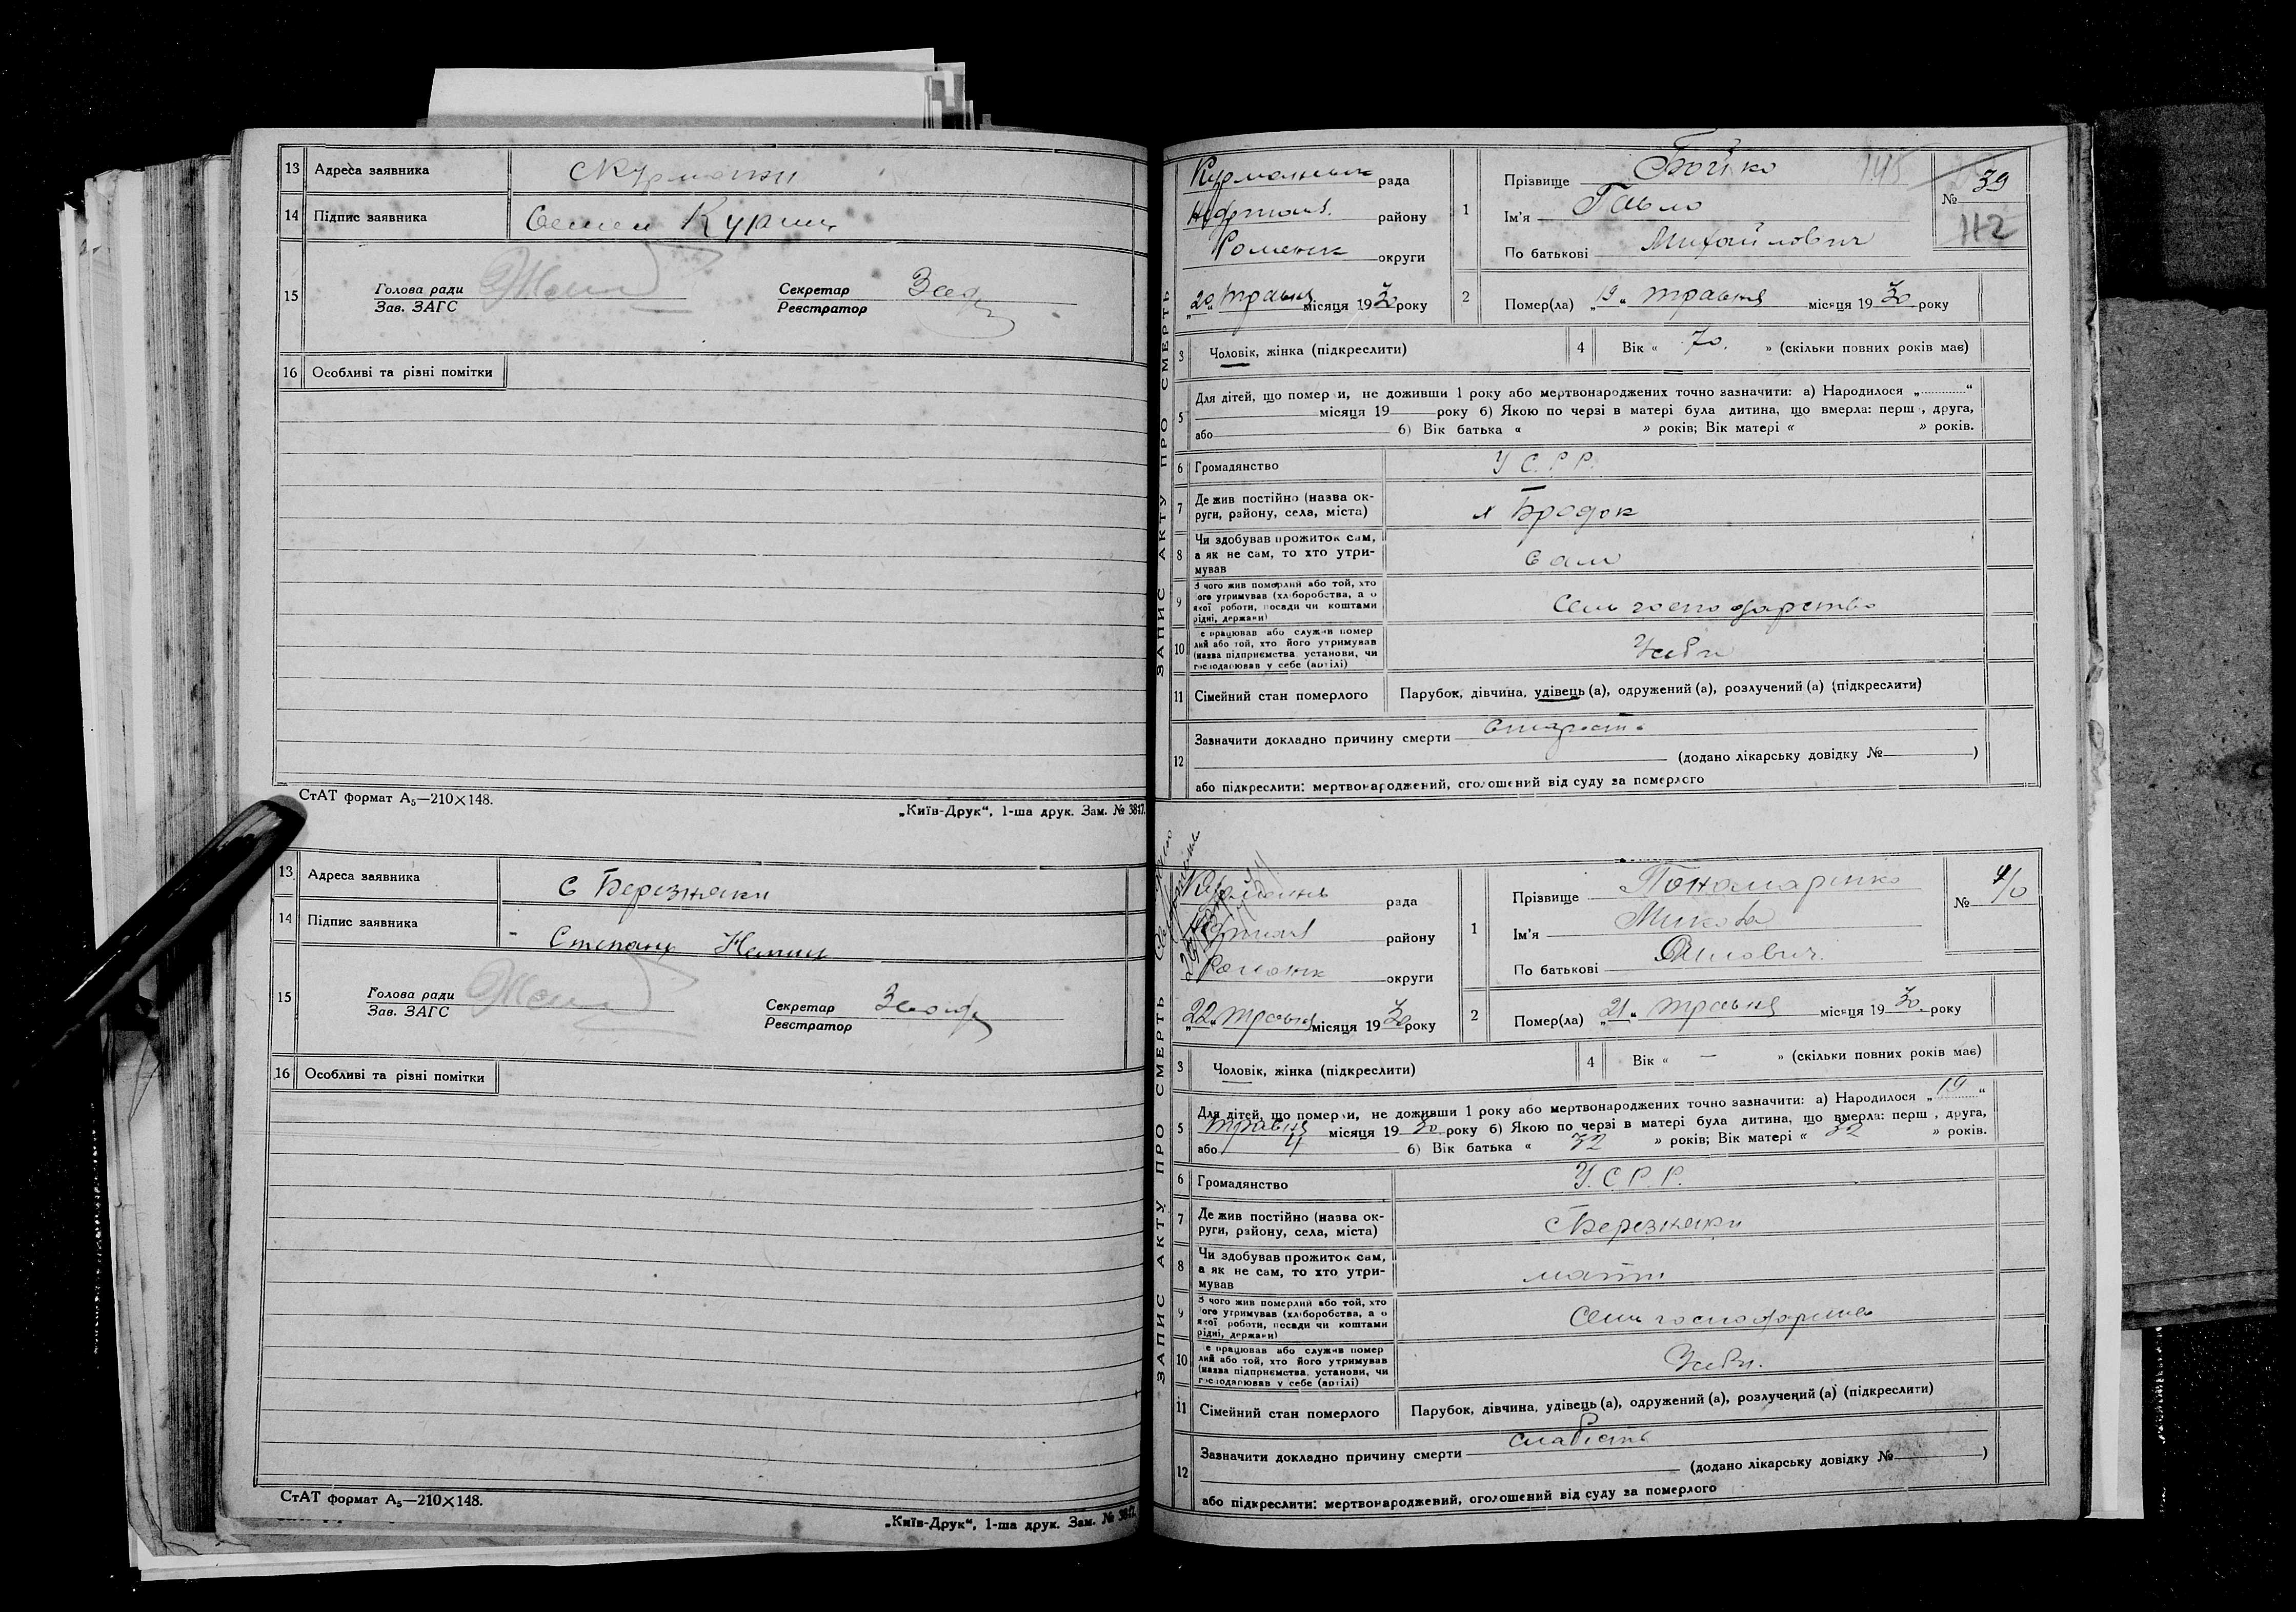 13 Адреса заявника с Курмани
14 Підпис заявника Семен
15 Голова ради
Зав. ЗАГС
Секретар
Реєстратор
16 Особливі та різні помітки
СтАТ формат А₅—210×148.
„Київ-Друк“, 1-ша друк. Зам. № 3847.
13 Адреса заявника с Березняки
14 Підпис заявника Степан
15 Голова ради
Зав. ЗАГС
Секретар
Реєстратор
16 Особливі та різні помітки
СтАТ формат А₅—210×148.
„Київ-Друк“, 1-ша друк. Зам. № 3847.
ЗАПИС АКТУ ПРО СМЕРТЬ
рада
району
Роменск округи
„20“ травня місяця 1930 року
1 Прізвище Бойко 145
Ім'я Павло
По батькові Михайлович
№ 39
112
2 Помер(ла) „19“ травня місяця 1930 року
3 Чоловік, жінка (підкреслити)
4 Вік « 70. » (скільки повних років має)
5 Для дітей, що померли, не доживши 1 року або мертвонароджених точно зазначити: а) Народилося „ “
місяця 19 року б) Якою по черзі в матері була дитина, що вмерла: перш , друга,
або б) Вік батька « » років; Вік матері « » років.
6 Громадянство У.С.Р.Р.
7 Де жив постійно (назва ок-
руги, району, села, міста) х Бродок
8 Чи здобував прожиток сам,
а як не сам, то хто утри-
мував сам
9 З чого жив померлий або той, хто
ого утримував (хліборобства, а о
якої роботи, посади чи коштами
рідні, держави) Сель господарство
10 е працював або служив помер
лий або той, хто його утримував
(назва підприємства установи, чи
господарював у себе (артілі) У себи
11 Сімейний стан померлого Парубок, дівчина, удівець (а), одружений (а), розлучений (а) (підкреслити)
12 Зазначити докладно причину смерти старость
(додано лікарську довідку № )
або підкреслити: мертвонароджений, оголошений від суду за померлого
ЗАПИС АКТУ ПРО СМЕРТЬ
рада
району
округи
„22“ травня місяця 1930 року
1 Прізвище Пономаренко
Ім'я Микола
По батькові
№ 40
2 Помер(ла) „21“ травня місяця 1930. року
3 Чоловік, жінка (підкреслити)
4 Вік « — » (скільки повних років має)
5 Для дітей, що померли, не доживши 1 року або мертвонароджених точно зазначити: а) Народилося „19“
травня місяця 1930 року б) Якою по черзі в матері була дитина, що вмерла: перш , друга,
або 4 б) Вік батька « 32 » років; Вік матері « 32 » років.
6 Громадянство У.С.Р.Р.
7 Де жив постійно (назва ок-
руги, району, села, міста) с Березняки
8 Чи здобував прожиток сам,
а як не сам, то хто утри-
мував мати
9 З чого жив померлий або той, хто
ого утримував (хліборобства, а о
якої роботи, посади чи коштами
рідні, держави) Сель господарство
10 е працював або служив помер
лий або той, хто його утримував
(назва підприємства, установи, чи
господарював у себе (артілі) У себи.
11 Сімейний стан померлого Парубок, дівчина, удівець (а), одружений (а), розлучений (а) (підкреслити)
12 Зазначити докладно причину смерти слабість
(додано лікарську довідку № )
або підкреслити: мертвонароджений, оголошений від суду за померлого